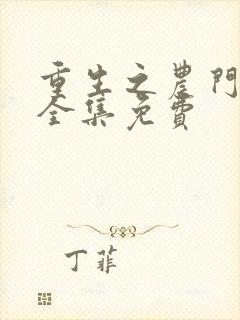 重生之農門
全集免費
丁菲